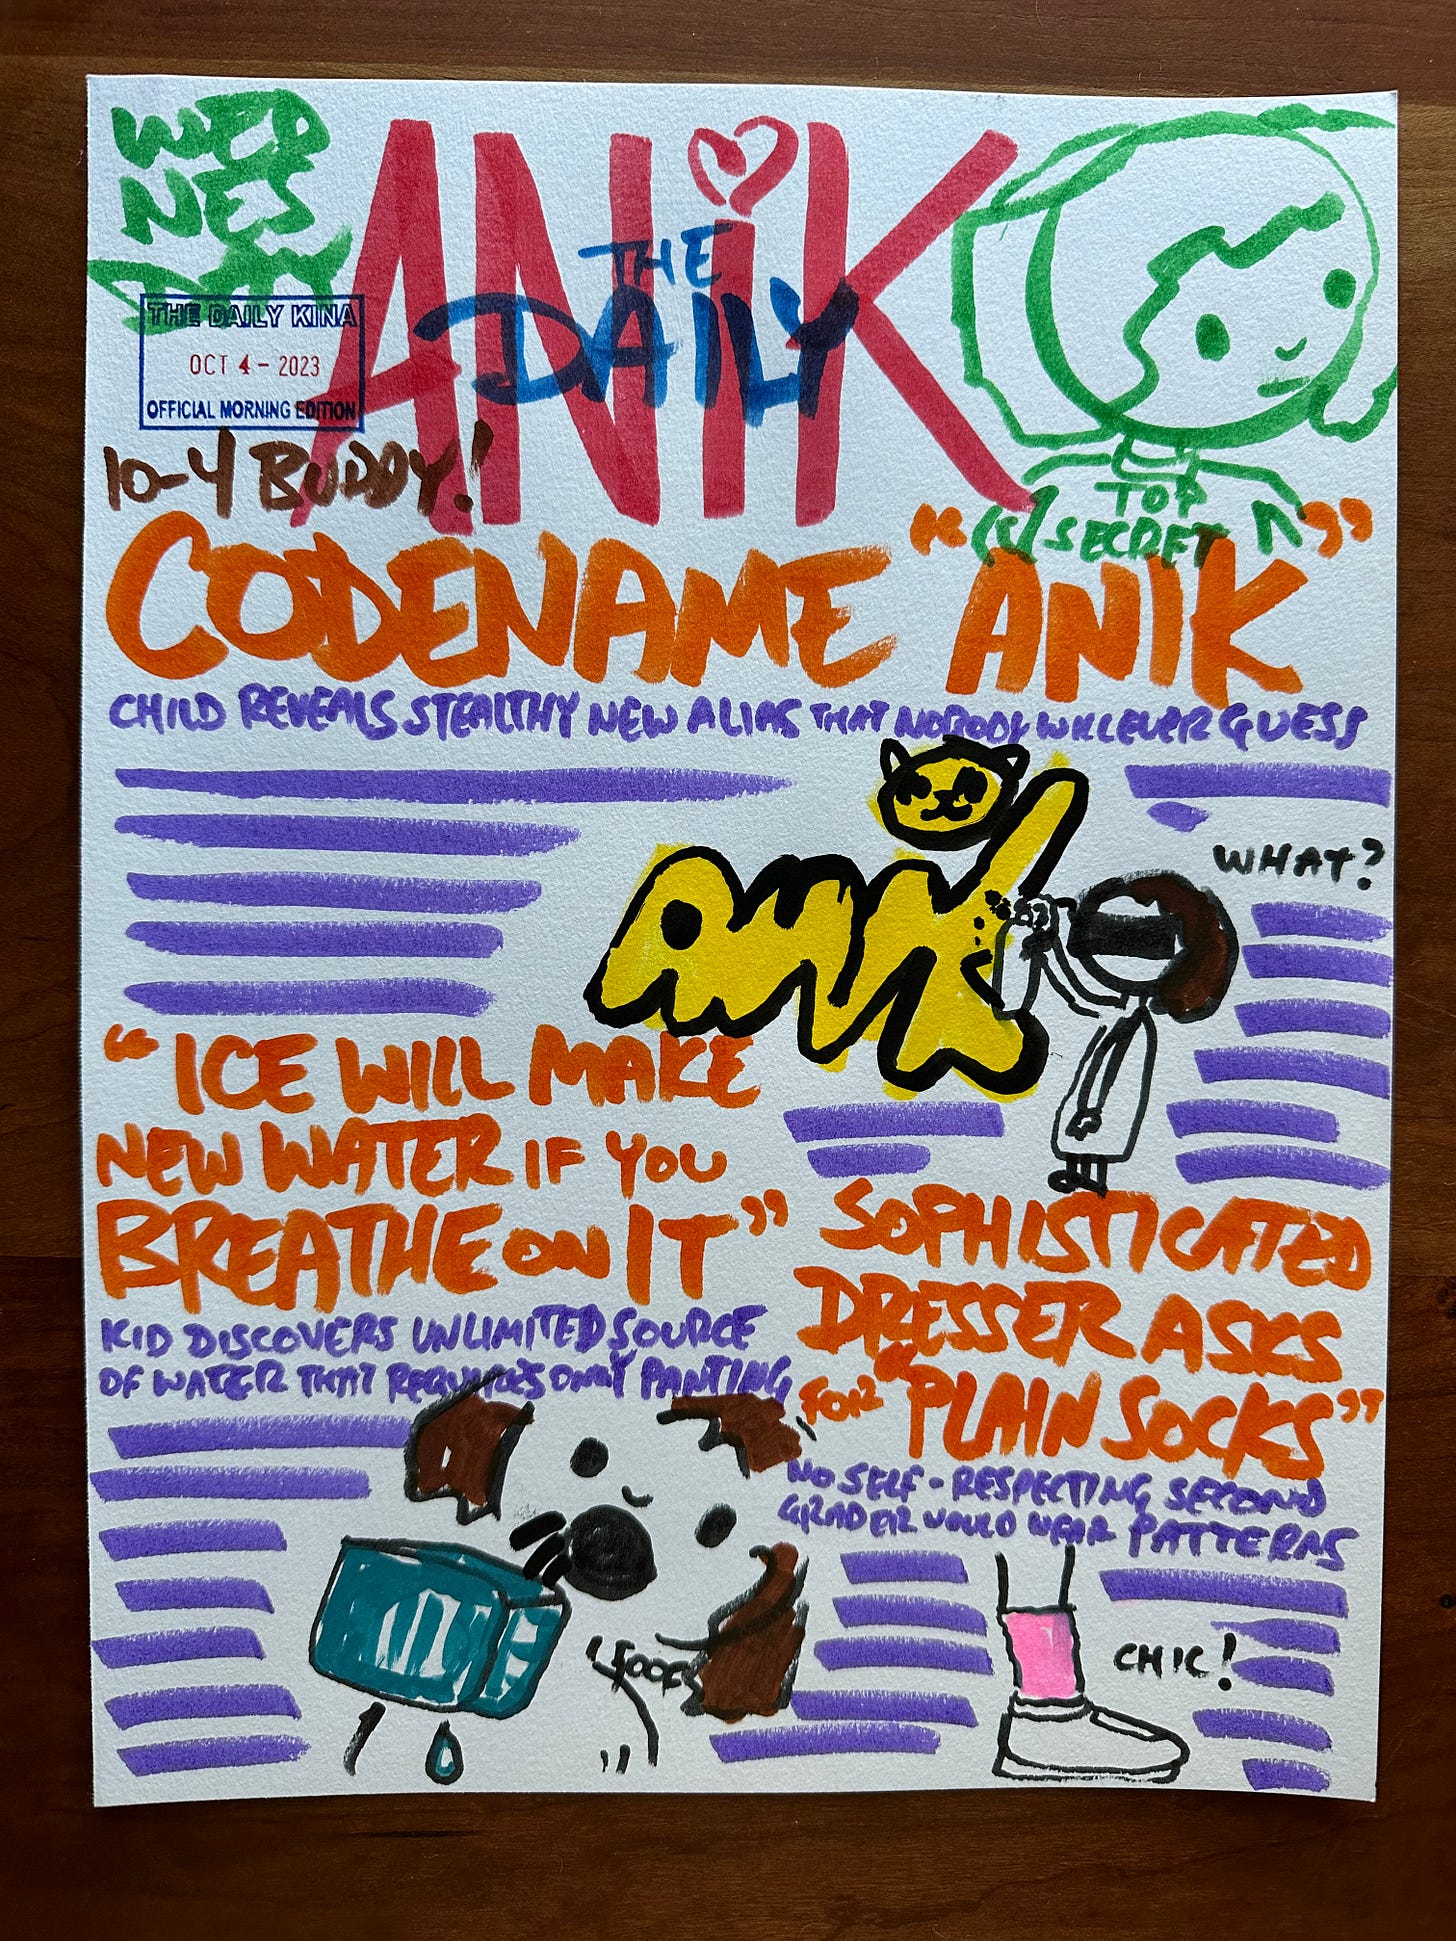 WED
NES
DAY
THE DAILY KINA
OCT 4 - 2023
OFFICIAL MORNING EDITION
10-4 BUDDY!
ANiK
THE
DAILY
TOP
SECRET
CODENAME "ANIK"
CHILD REVEALS STEALTHY NEW ALIAS THAT NOBODY WILL EVER GUESS
WHAT?
ANIK
"ICE WILL MAKE
NEW WATER IF YOU
BREATHE ON IT"
KID DISCOVERS UNLIMITED SOURCE
OF WATER THAT REQUIRES ONLY PANTING
FOOF
SOPHISTICATED
DRESSER ASKS
FOR "PLAIN SOCKS"
NO SELF-RESPECTING SECOND
GRADER WOULD WEAR PATTERNS
CHIC!